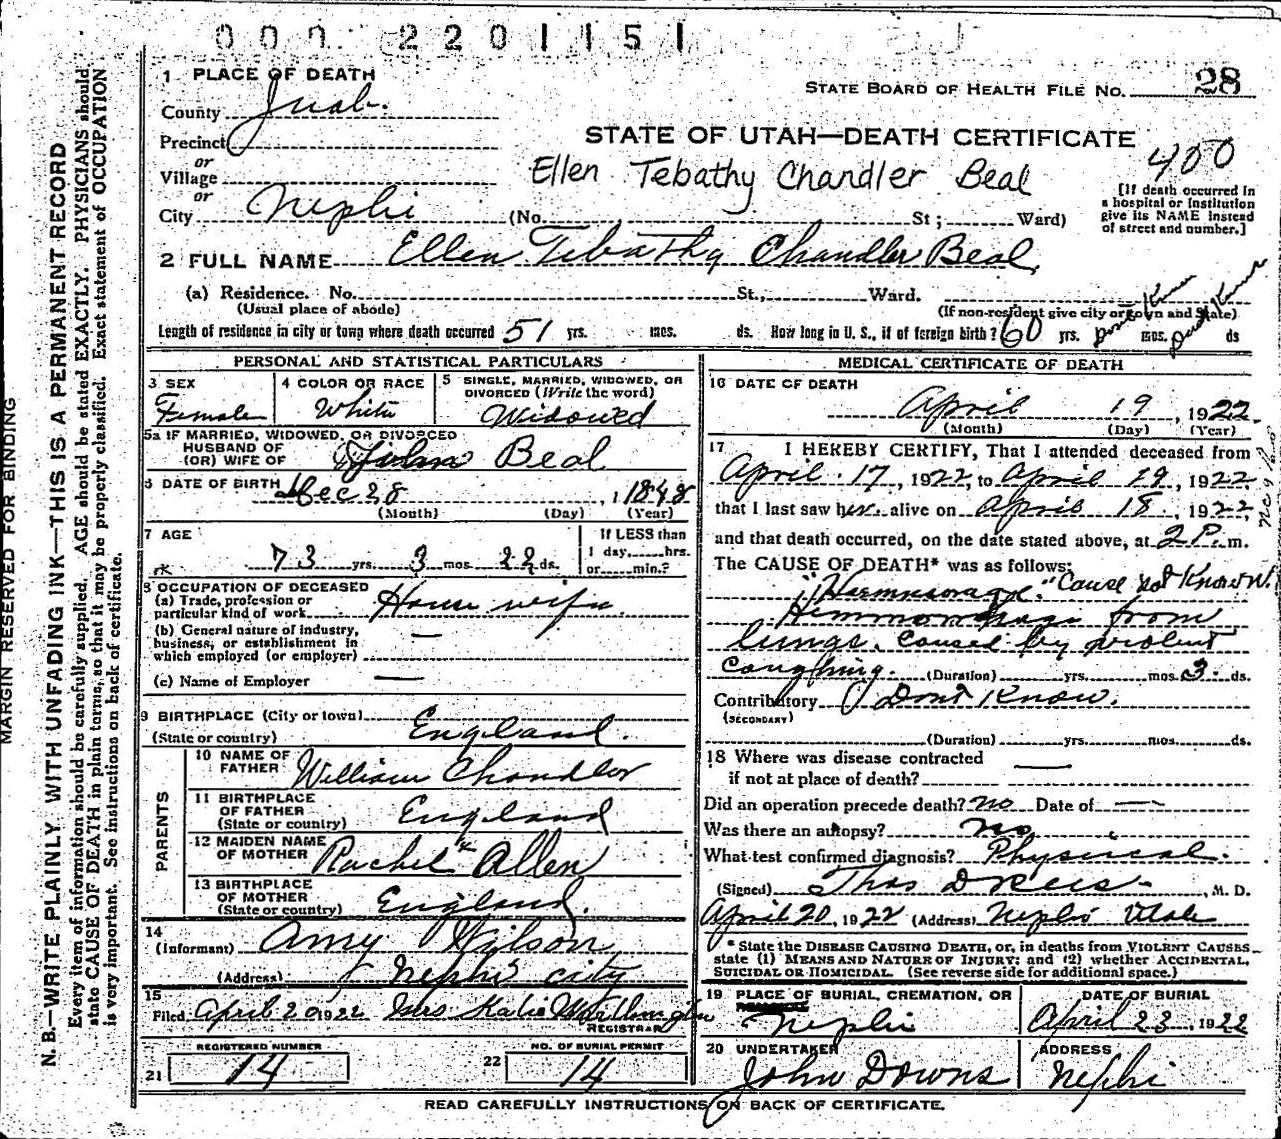 000 2201151
1 PLACE OF DEATH
STATE BOARD OF HEALTH FILE NO. 28
County Juab
Precinct
STATE OF UTAH—DEATH CERTIFICATE
or
Village
Ellen Tebathy Chandler Beal
400
or
City Nephi (No. St; Ward)
[If death occurred in
a hospital or institution
give its NAME instead
of street and number.]
2 FULL NAME Ellen Tebathy Chandler Beal
(a) Residence. No. St., Ward.
(Usual place of abode)
(If non-resident give city or town and State)
Length of residence in city or town where death occurred 51 yrs. mos. ds. How long in U. S., if of foreign birth? 60 yrs. Dont Know mos. Dont Know ds
PERSONAL AND STATISTICAL PARTICULARS
3 SEX
Female
4 COLOR OR RACE
White
5 SINGLE, MARRIED, WIDOWED, OR
DIVORCED (Write the word)
Widowed
5a IF MARRIED, WIDOWED, OR DIVORCED
HUSBAND OF
(OR) WIFE OF John Beal
6 DATE OF BIRTH Dec 28, 1848
(Month) (Day) (Year)
7 AGE
73 yrs. 3 mos. 22 ds.
If LESS than
1 day, hrs.
or min.?
8 OCCUPATION OF DECEASED
(a) Trade, profession or
particular kind of work House wife
(b) General nature of industry,
business, or establishment in
which employed (or employer) —
(c) Name of Employer —
9 BIRTHPLACE (City or town)
(State or country) England.
PARENTS
10 NAME OF
FATHER William Chandler
11 BIRTHPLACE
OF FATHER
(State or country) England
12 MAIDEN NAME
OF MOTHER Rachel Allen
13 BIRTHPLACE
OF MOTHER
(State or country) England.
14
(Informant) Amy Wilson
(Address) Nephi city
15
Filed April 20 1922 Mrs Katie Worthington
REGISTRAR
REGISTERED NUMBER
21 14
NO. OF BURIAL PERMIT
22 14
MEDICAL CERTIFICATE OF DEATH
16 DATE OF DEATH
April 19, 1922
(Month) (Day) (Year)
17 I HEREBY CERTIFY, That I attended deceased from
April 17, 1922, to April 19, 1922
that I last saw her alive on April 18, 1922,
and that death occurred, on the date stated above, at 2 P. m.
The CAUSE OF DEATH* was as follows:
"Haemmorage." Cause not Known.
Hemmorhage from
lungs. caused by violent
coughing. (Duration) yrs. mos. 3. ds.
Contributory Dont Know.
(SECONDARY)
(Duration) yrs. mos. ds.
18 Where was disease contracted
if not at place of death? —
Did an operation precede death? no Date of —
Was there an autopsy? no
What test confirmed diagnosis? Physical.
(Signed) Thos D Rees, M. D.
April 20, 1922 (Address) Nephi Utah
*State the DISEASE CAUSING DEATH, or, in deaths from VIOLENT CAUSES
state (1) MEANS AND NATURE OF INJURY; and (2) whether ACCIDENTAL,
SUICIDAL OR HOMICIDAL. (See reverse side for additional space.)
19 PLACE OF BURIAL, CREMATION, OR
Nephi
DATE OF BURIAL
April 23, 1922
20 UNDERTAKER
John Downs
ADDRESS
Nephi
READ CAREFULLY INSTRUCTIONS ON BACK OF CERTIFICATE.
MARGIN RESERVED FOR BINDING
N. B.—WRITE PLAINLY WITH UNFADING INK—THIS IS A PERMANENT RECORD
Every item of information should be carefully supplied. AGE should be stated EXACTLY. PHYSICIANS should
state CAUSE OF DEATH in plain terms, so that it may be properly classified. Exact statement of OCCUPATION
is very important. See instructions on back of certificate.